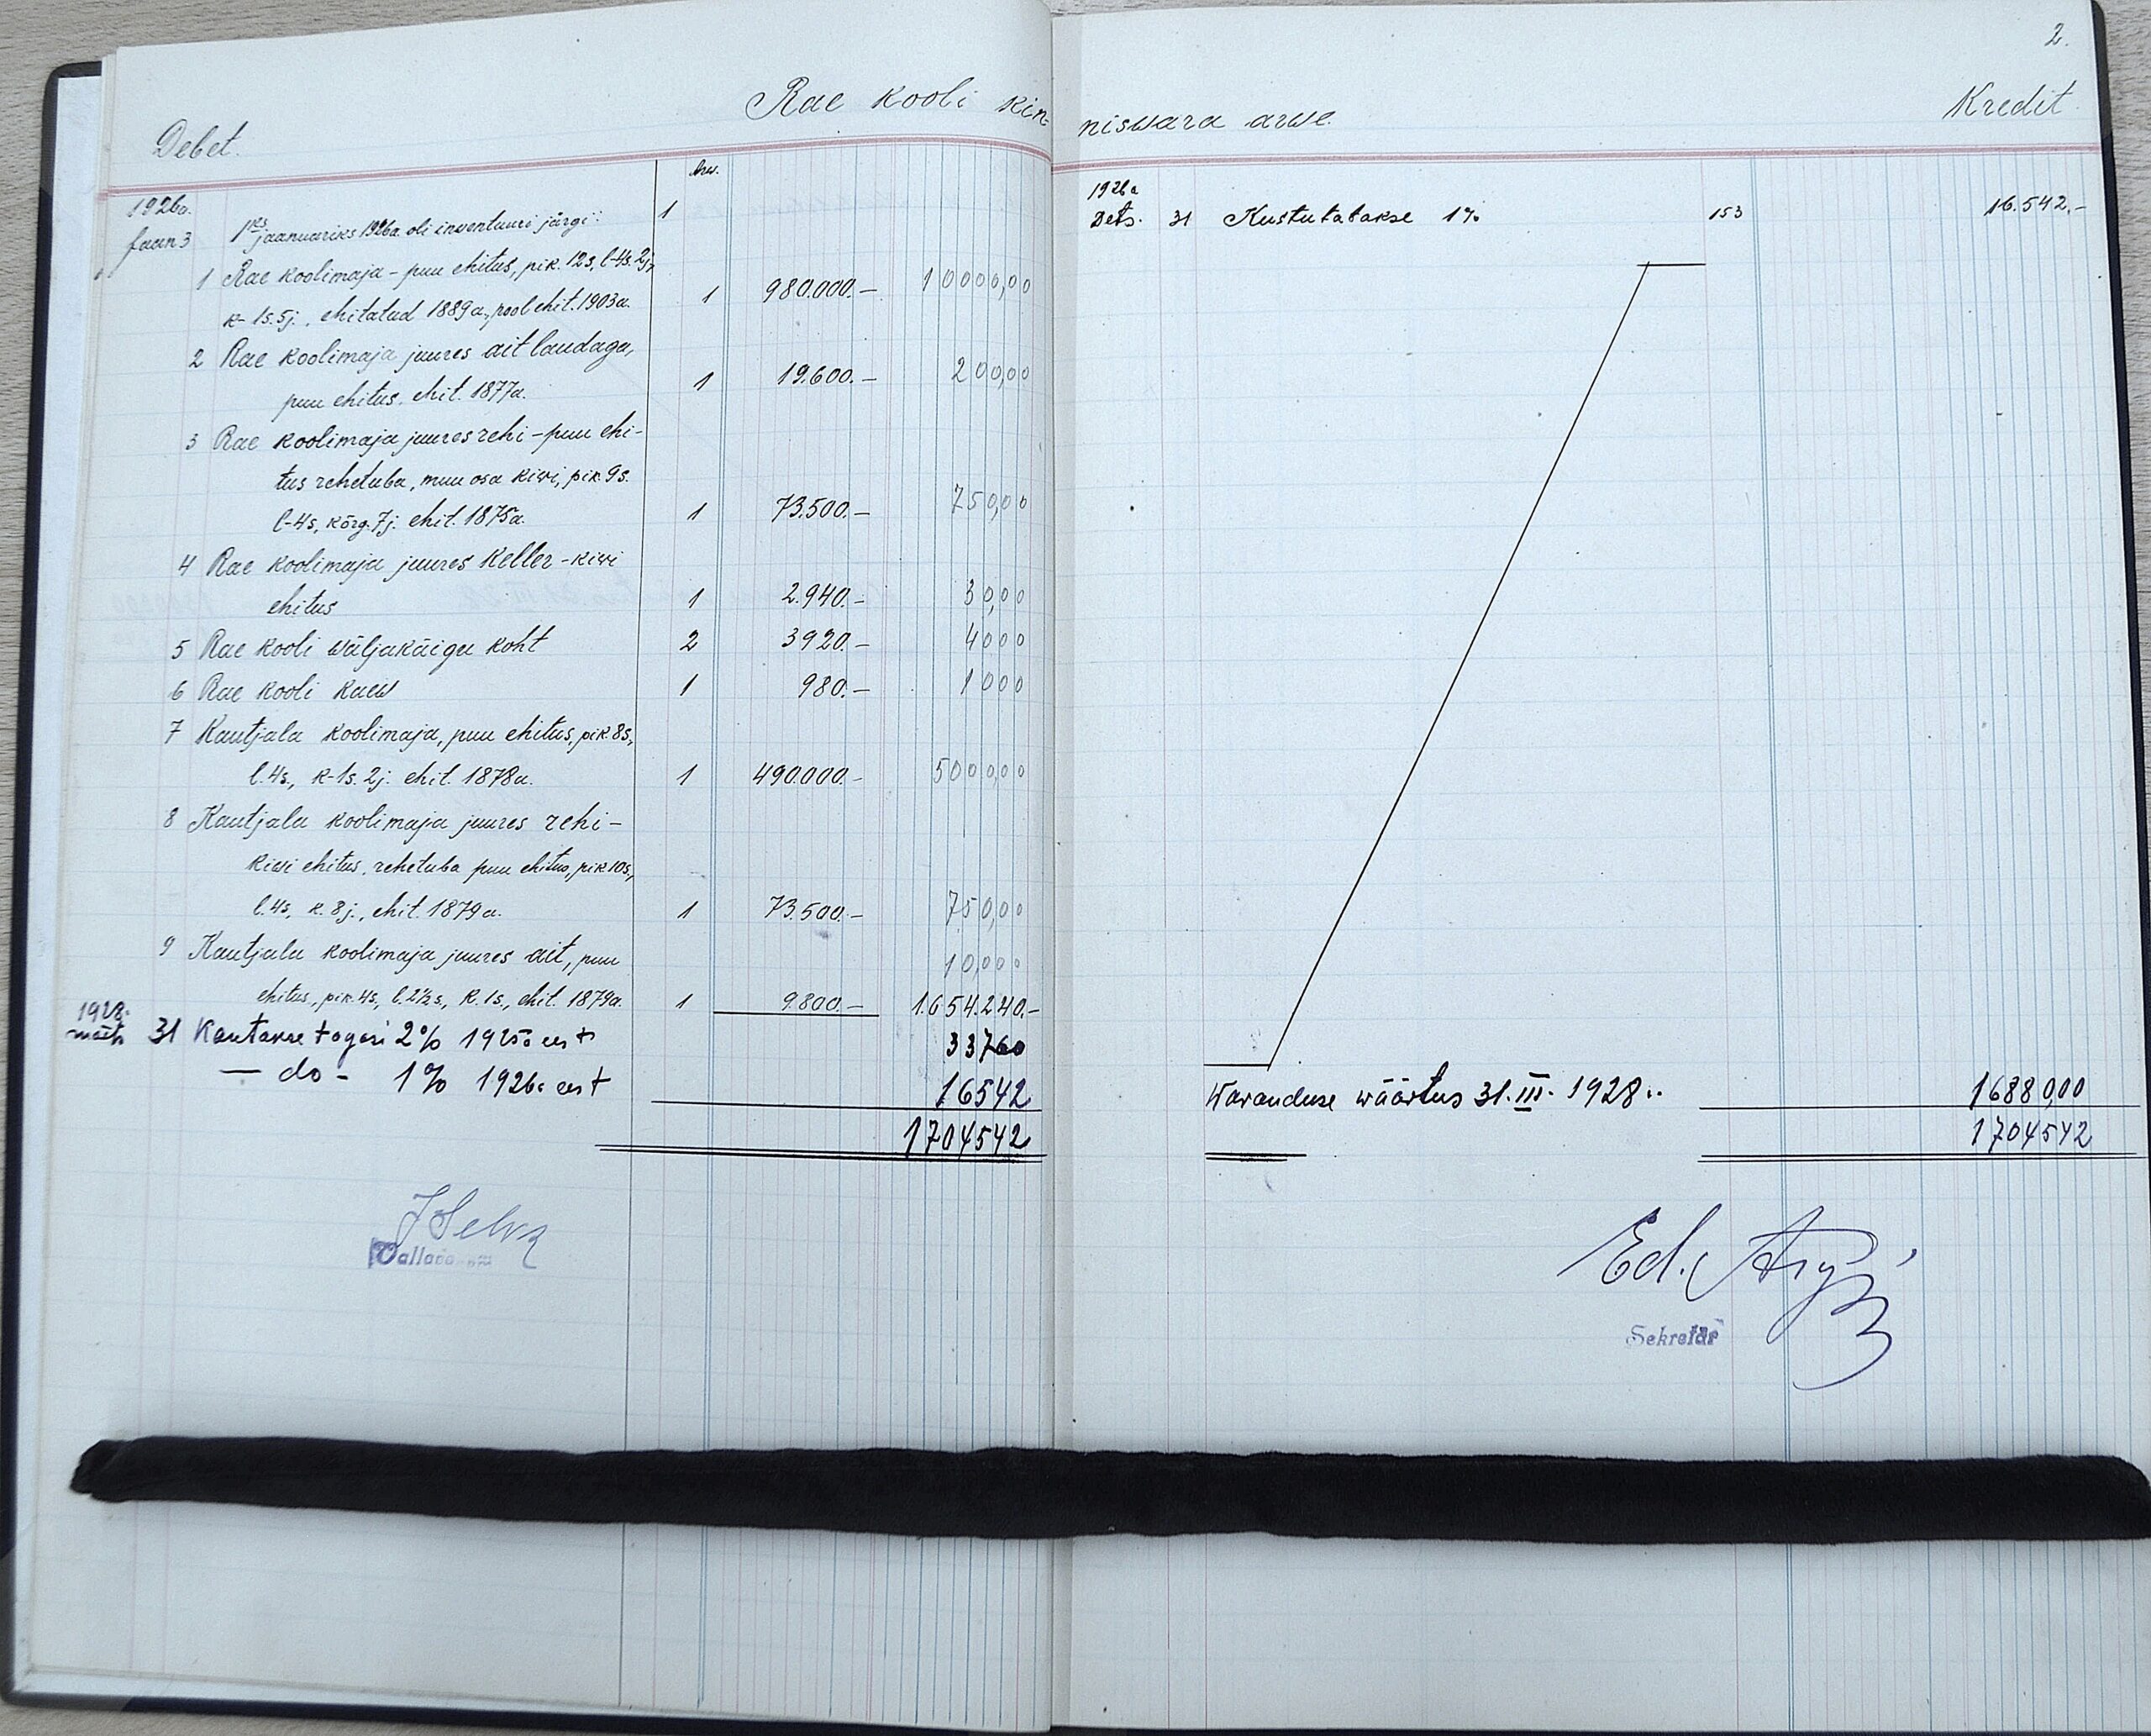 2.
Rae kooli kin-
niswara arwe.
Debet.
Kredit
Arw.
1926a.
Jaan 3 1ks jaanuariks 1926a. oli inwentuuri järgi: 1
1 Rae koolimaja - puu ehitus, pik. 12s, l-4s. 2j,
k-1s. 5j., ehitatud 1889a., pool ehit. 1903a. 1 980.000.- 10000,00
2 Rae koolimaja juures ait laudaga,
puu ehitus. ehit. 1877a. 1 19.600.- 200,00
3 Rae koolimaja juures rehi - puu ehi-
tus rehetuba, muu osa kiwi, pik. 9s.
l-4s, kõrg. 7j. ehit. 1875a. 1 73.500.- 750,00
4 Rae koolimaja juures keller - kiwi
ehitus 1 2.940.- 30,00
5 Rae kooli wäljakäigu koht 2 3920.- 4000
6 Rae kooli kaew 1 980.- 1000
7 Kautjala koolimaja, puu ehitus, pik. 8s,
l. 4s., k-1s. 2j. ehit. 1878a. 1 490.000.- 5000,00
8 Kautjala koolimaja juures rehi -
kiwi ehitus, rehetuba puu ehitus, pik 10s.,
l. 4s, k. 8j., ehit. 1879a. 1 73.500.- 750,00
9 Kautjala koolimaja juures ait, puu 10,000
ehitus, pik. 4s, l. 2½s, k. 1s., ehit. 1879a. 1 9.800.- 1.654.240.-
1928.
märts 31 Kantakse tagasi 2% 1925a eest 33760
- do - 1% 1926a eest 16542
1704542
Sekretär
1926a
Dets. 31 Kustutatakse 1% 153 16.542.-
Waranduse wäärtus 31. III. 1928.. 16880,00
1704542
Ed.